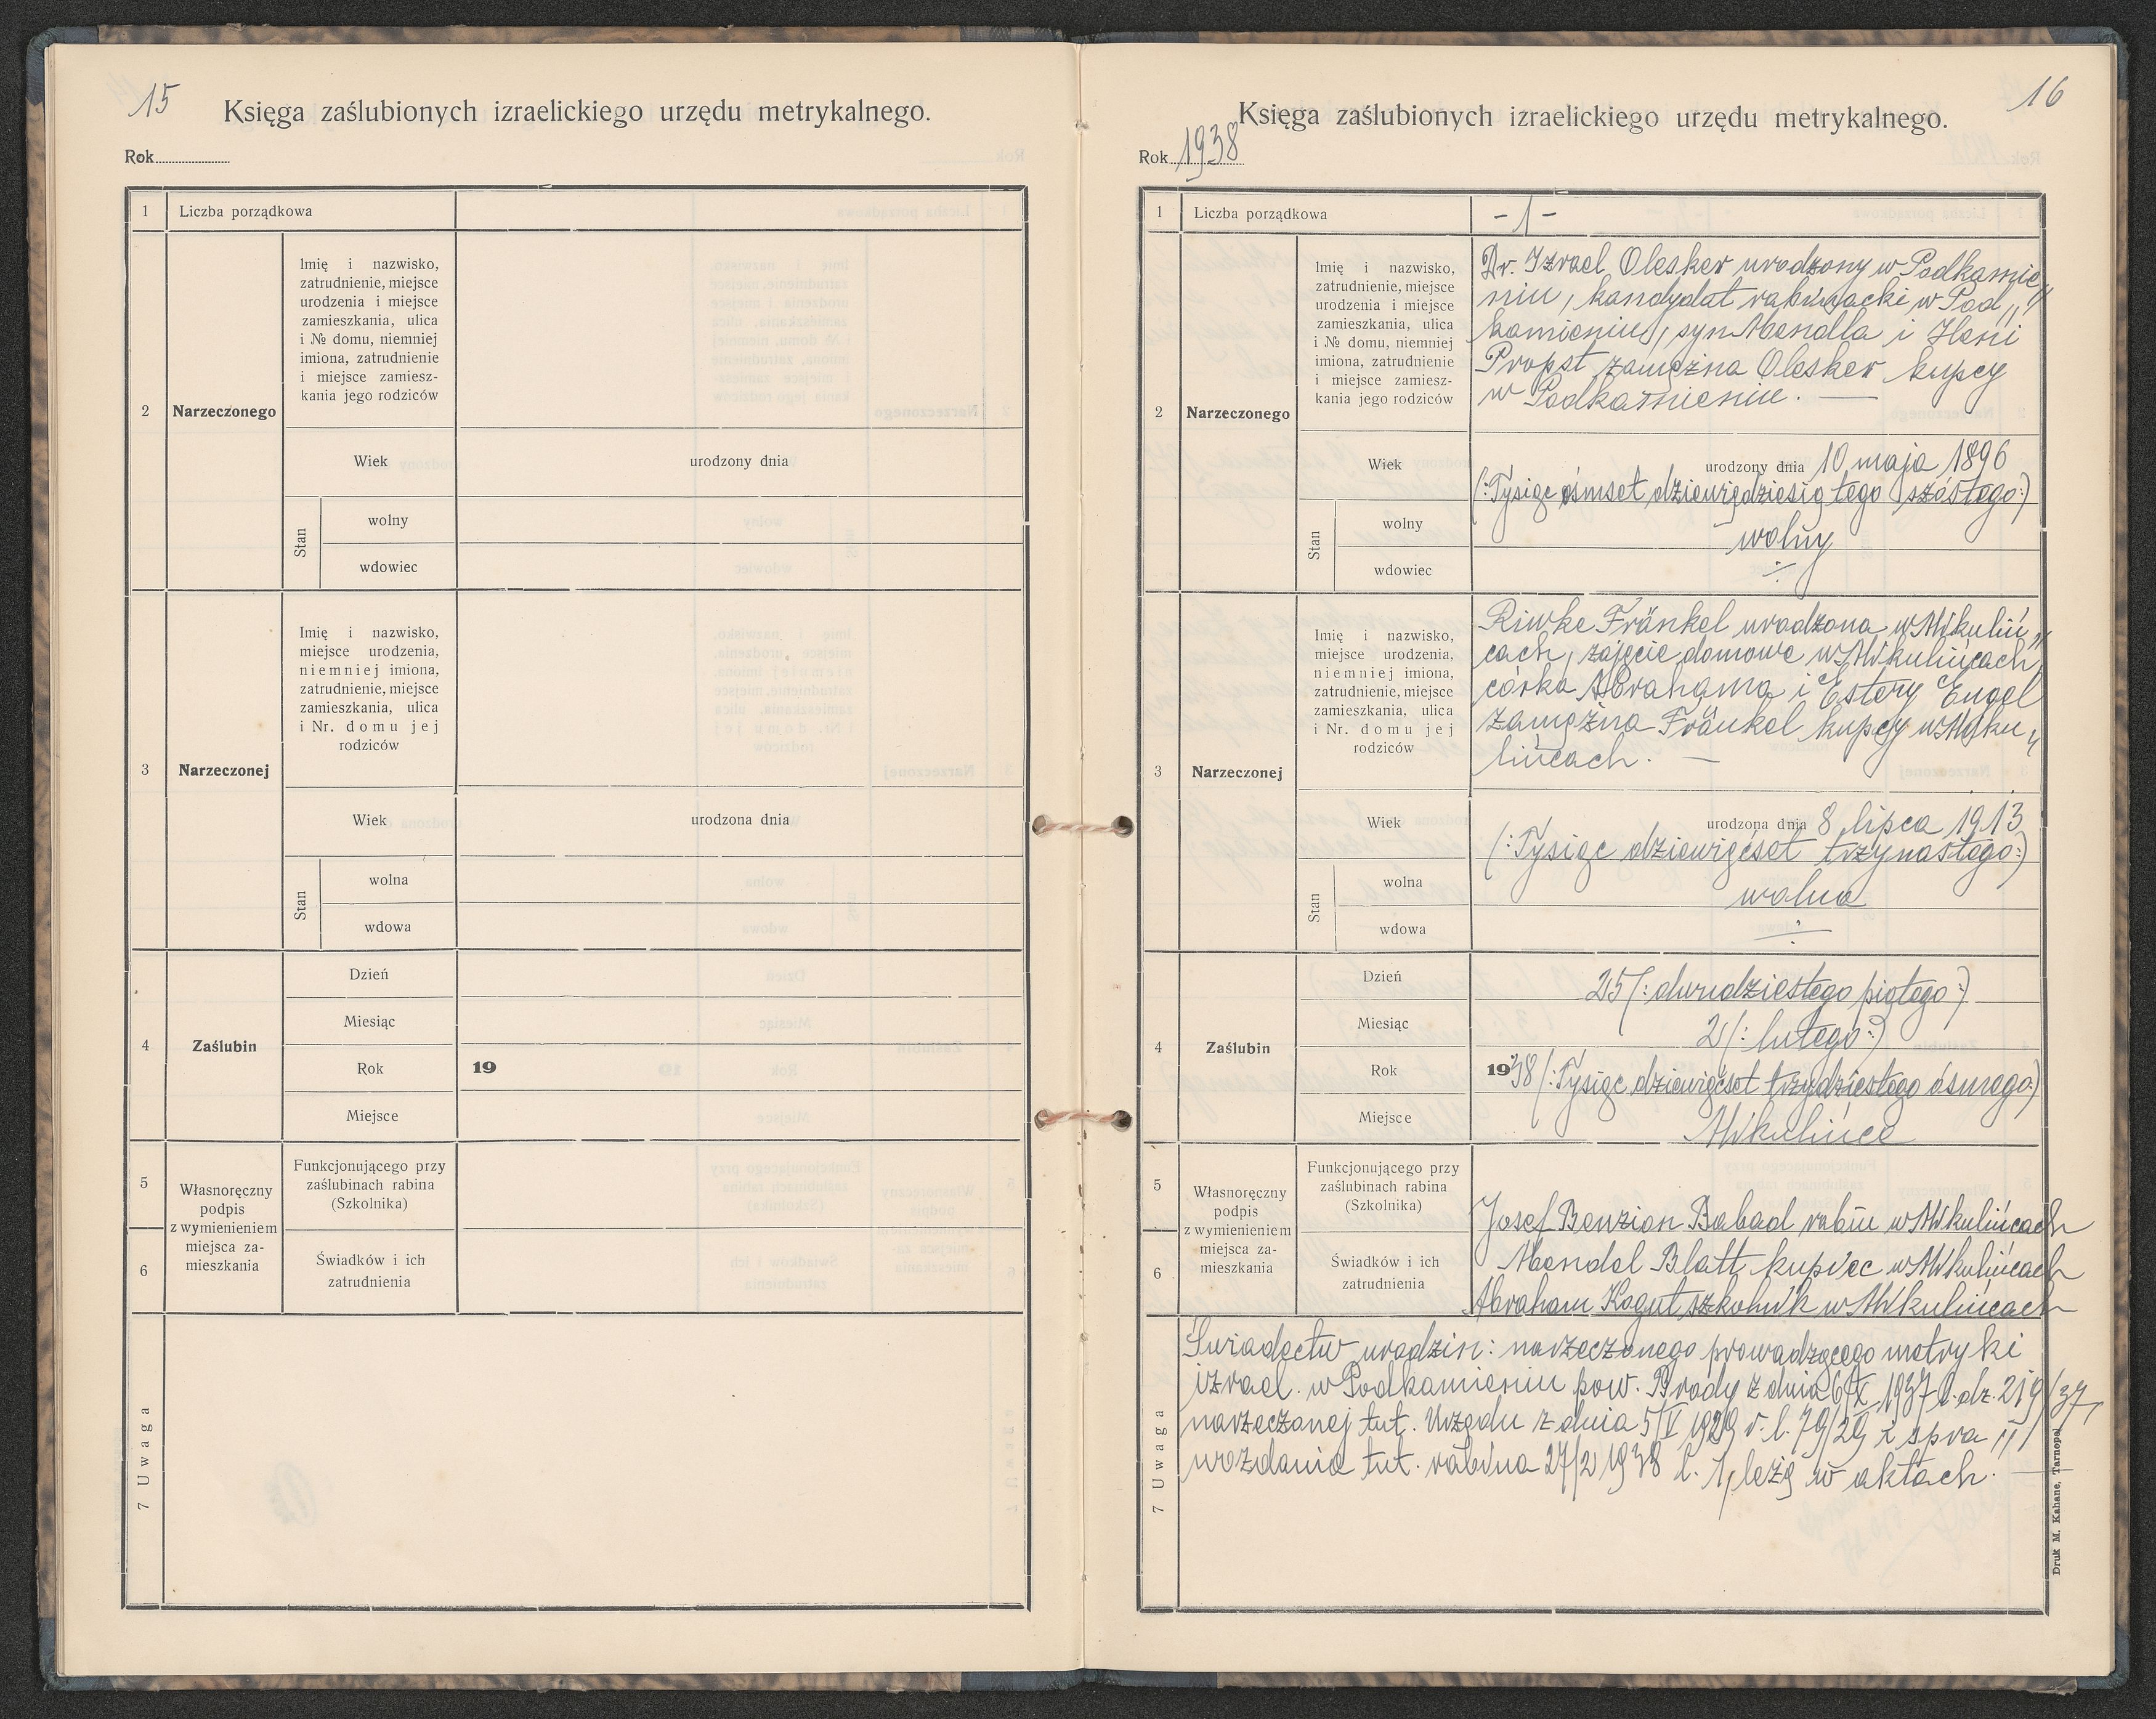 15
Księga zaślubionych izraelickiego urzędu metrykalnego.
Rok
1 Liczba porządkowa
2 Narzeczonego
Imię i nazwisko,
zatrudnienie, miejsce
urodzenia i miejsce
zamieszkania, ulica
i № domu, niemniej
imiona, zatrudnienie
i miejsce zamiesz-
kania jego rodziców
Wiek urodzony dnia
Stan
wolny
wdowiec
3 Narzeczonej
Imię i nazwisko,
miejsce urodzenia,
niemniej imiona,
zatrudnienie, miejsce
zamieszkania, ulica
i Nr. domu jej
rodziców
Wiek urodzona dnia
Stan
wolna
wdowa
4 Zaślubin
Dzień
Miesiąc
Rok 19
Miejsce
5
6
Własnoręczny
podpis
z wymienieniem
miejsca za-
mieszkania
Funkcjonującego przy
zaślubinach rabina
(Szkolnika)
Świadków i ich
zatrudnienia
7 Uwaga
16
Księga zaślubionych izraelickiego urzędu metrykalnego.
Rok 1938
1 Liczba porządkowa - 1 -
2 Narzeczonego
Imię i nazwisko,
zatrudnienie, miejsce
urodzenia i miejsce
zamieszkania, ulica
i № domu, niemniej
imiona, zatrudnienie
i miejsce zamiesz-
kania jego rodziców
Dr. Izrael Olesker urodzony w Podkamie„
niu, kandydat rabinacki w Pod„
kamieniu, syn Mendla i Heni
Propst zamężna Olesker kupcy
w Podkamieniu. —
Wiek urodzony dnia 10 maja 1896
(: Tysiąc ośmset dziewiędziesiątego szóstego:)
Stan
wolny wolny
wdowiec ÷
3 Narzeczonej
Imię i nazwisko,
miejsce urodzenia,
niemniej imiona,
zatrudnienie, miejsce
zamieszkania, ulica
i Nr. domu jej
rodziców
Riwke Fränkel urodzona w Mikuliń„
cach, zajęcie domowe w Mikulińcach,
córka Abrahama i Estery Engel
zamężna Fränkel kupcy w Miku„
lińcach. —
Wiek urodzona dnia 8 lipca 1913
(: Tysiąc dziewięćset trzynastego:)
Stan
wolna wolna
wdowa ÷
4 Zaślubin
Dzień 25 (: dwudziestego piątego:)
Miesiąc 2 (: lutego:)
Rok 1938 (: Tysiąc dziewięćset trzydziestego ósmego:)
Miejsce Mikulińce
5
6
Własnoręczny
podpis
z wymienieniem
miejsca za-
mieszkania
Funkcjonującego przy
zaślubinach rabina
(Szkolnika)
Josef Benzion Babad rabin w Mikulińcach
Świadków i ich
zatrudnienia
Mendel Blatt kupiec w Mikulińcach
Abraham Kogut szkolnik w Mikulińcach
7 Uwaga
Świadectw urodzin: narzeczonego prowadzącego metryki
izrael. w Podkamieniu pow. Brody z dnia 6/X 1937 l. dz. 219/37,
narzeczonej tut. Urzędu z dnia 5/V 1929 r. l. 79/29 i spra„
wozdania tut. rabina 27/2 1938 l. 1, leżą w aktach. —
Druk M. Kahane, Tarnopol